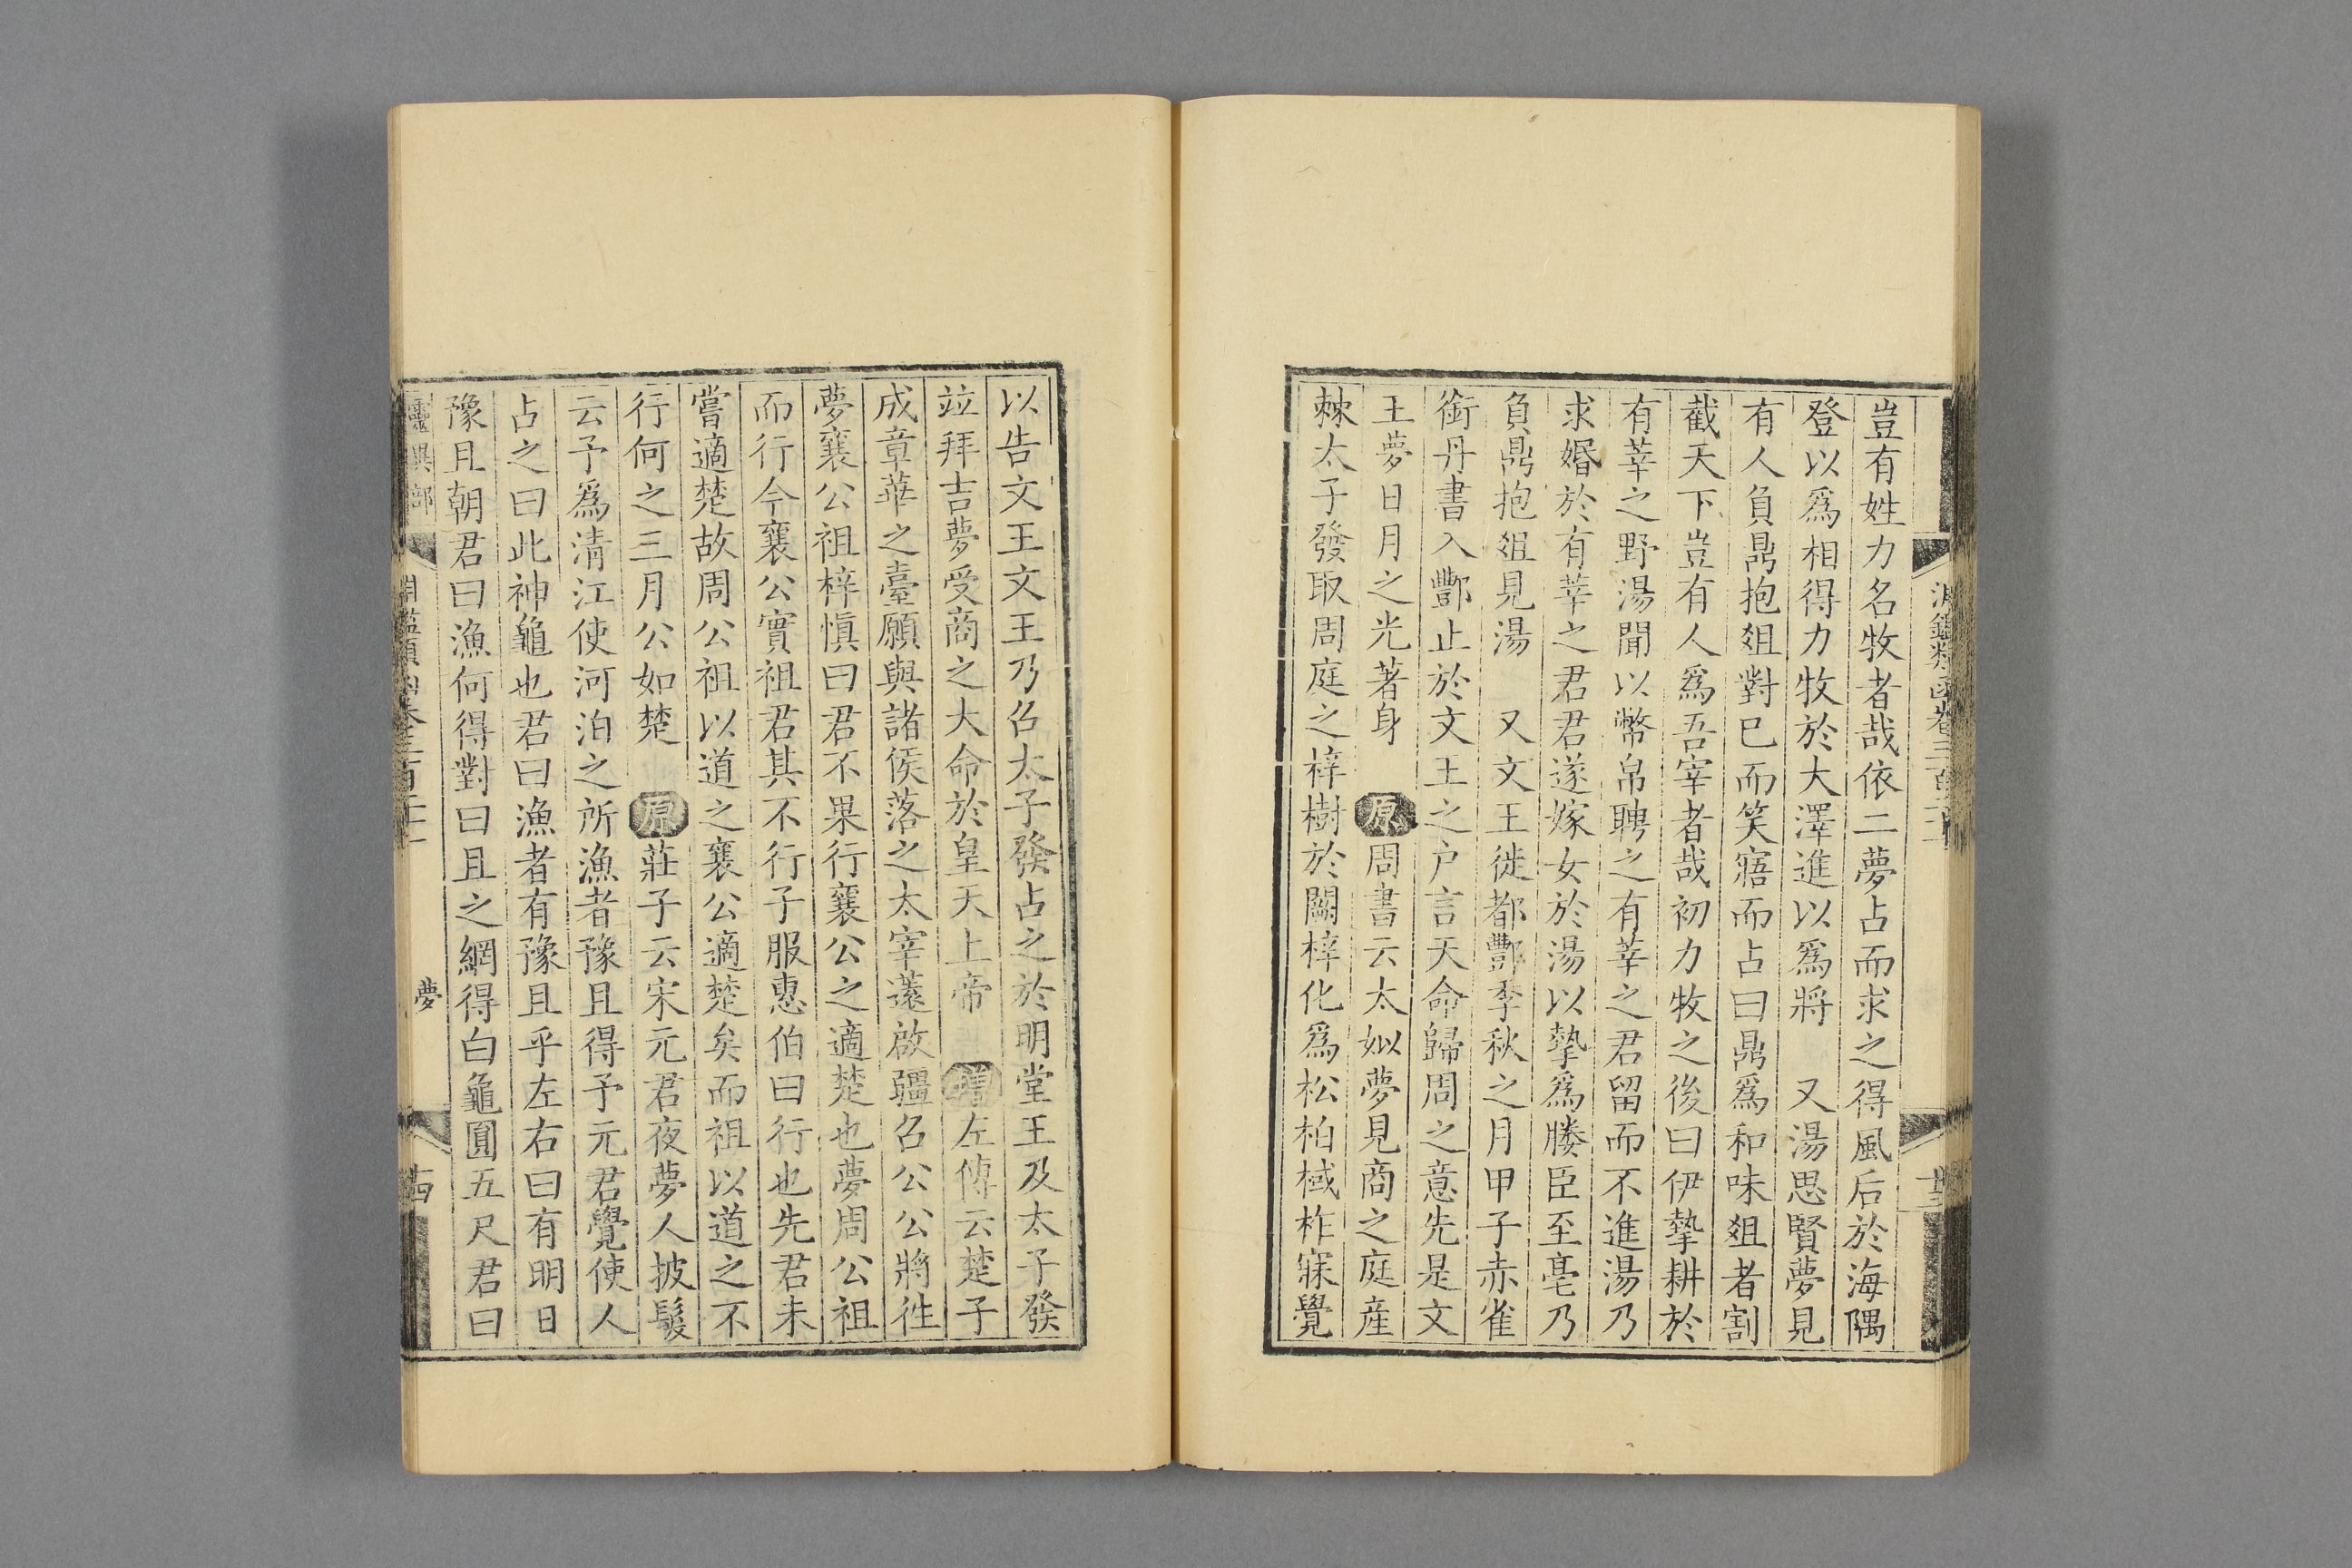 豈有姓力名牧者哉依二夢占而求之得風后於海隅
登以爲相得力牧於大澤進以爲將 又湯思賢夢見
有人負鼎抱爼對巳而笑寤而占曰鼎爲和味爼者割
截天下豈有人爲吾宰者哉初力牧之後曰伊摯耕於
有莘之野湯聞以幣帛聘之有莘之君留而不進湯乃
求婚於有莘之君君遂嫁女於湯以摯爲媵臣至亳乃
負鼎抱爼見湯 又文王徙都酆季秋之月甲子赤雀
銜丹書入酆止於文王之户言天命歸周之意先是文
王夢日月之光著身 原周書云太姒夢見商之庭産
棘太子發取周庭之梓樹於闕梓化爲松柏棫柞寐覺
淵鑑類函卷三百二十
以告文王文王乃召太子發占之於明堂王及太子發
竝拜吉夢受商之大命於皇天上帝 增左傳云楚子
成章華之臺願與諸侯落之太宰薳啟疆召公公將徃
夢襄公祖梓愼曰君不果行襄公之適楚也夢周公祖
而行今襄公實祖君其不行子服惠伯曰行也先君未
嘗適楚故周公祖以道之襄公適楚矣而祖以道之不
行何之三月公如楚 原莊子云宋元君夜夢人披髮
云予爲清江使河泊之所漁者豫且得予元君覺使人
占之曰此神龜也君曰漁者有豫且乎左右曰有明日
豫且朝君曰漁何得對曰且之網得白龜圓五尺君曰
靈異部
夢